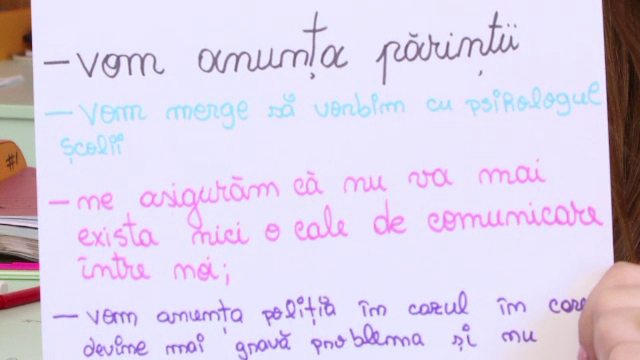 — vom anunța părinții
— vom merge să vorbim cu psihologul
școlii
— ne asigurăm că nu va mai
exista nici o cale de comunicare
între noi;
— vom anunța poliția în cazul în care
devine mai gravă problema și nu
#1